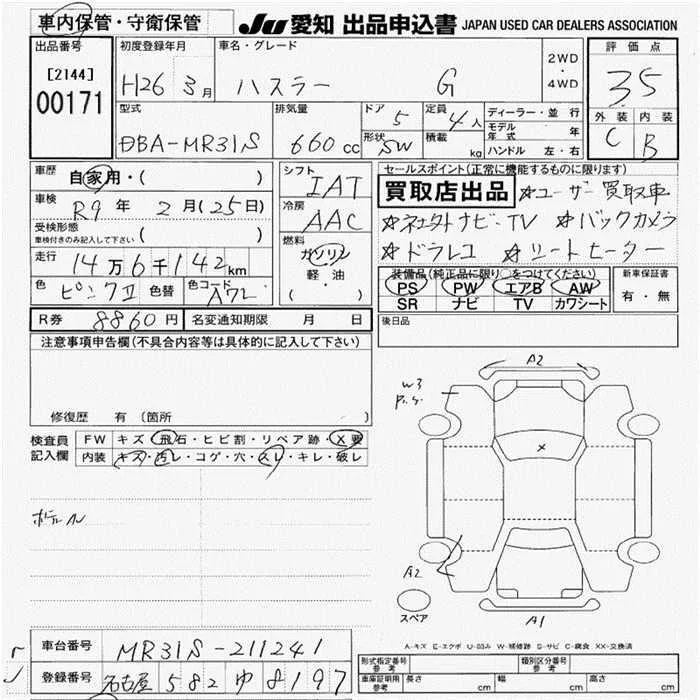 車内保管・守衛保管 JU 愛知 出品申込書 JAPAN USED CAR DEALERS ASSOCIATION
出品番号 初度登録年月 車名・グレード 2WD ・ 4WD 評価点
[2144] 00171 H26 3月 ハスラー G 35
型式 排気量 ドア 5 定員 4人 ディーラー・並行 外装 内装
DBA-MR31S 660cc 形状 SW 積載 kg モデル年式 年 C B
ハンドル 左・右
車歴 自家用・( ) シフト IAT セールスポイント(正常に機能するものに限ります)
車検 R9年 2月(25日) 冷房 AAC 買取店出品 ☆ユーザー買取車
受検形態 車検付きのみ記入して下さい ( ) ☆ナビ・TV ☆バックカメラ
走行 14万6千142km 燃料 ガソリン 軽油 (・) ☆ドラレコ ☆シートヒーター
色 ピンクII 色替 色コード 装備品(純正品に限り○をつけてください) 新車保証書
PS PW エアB AW 有・無
SR ナビ TV カワシート
R券 8860円 名変通知期限 月 日 後日品
注意事項申告欄(不具合内容等は具体的に記入して下さい)
修復歴 有(箇所 )
A2
W3
P.S.
X
A2
A1
スペア
検査員記入欄 FW キズ・飛石・ヒビ割・リペア跡・X要
内装 キズ・汚レ・コゲ・穴・スレ・キレ・破レ
A-キズ E-エクボ U-凹み W-補修跡 S-サビ C-腐食 XX-交換済
車台番号 MR31S-211241
登録番号 名古屋 582 ゆ 8197
形式指定番号 参考 類別区分番号 参考
車庫証明用 参考 長さ cm 幅 cm 高さ cm